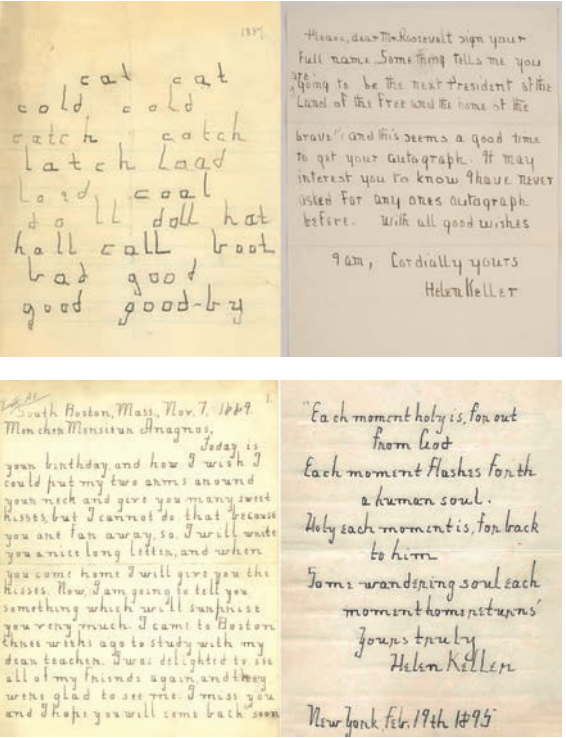 1887
cat cat
cold cold
catch catch
latch load
lord coal
do ll doll hat
hall call boot
bad good
good good-by
Please, dear Mr. Roosevelt sign your
full name. Something tells me you
are going to be the next President of the
Land of the Free and the home of the
brave", and this seems a good time
to get your autograph. It may
interest you to know I have never
asked for any ones autograph
before. With all good wishes
I am, Cordially yours
Helen Keller
1.
South Boston, Mass., Nov. 7, 1889.
Mon cher Monsieur Anagnos,
Today is
your birthday, and how I wish I
could put my two arms around
your neck and give you many sweet
kisses, but I cannot do that because
you are far away, so, I will write
you a nice long letter, and when
you come home I will give you the
kisses. Now, I am going to tell you
something which will surprise
you very much. I came to Boston
three weeks ago to study with my
dear teacher. I was delighted to see
all of my friends again, and they
were glad to see me. I miss you
and I hope you will come back soon
"Each moment holy is, for out
from God
Each moment flashes forth
a human soul.
Holy each moment is, for back
to him
Some wandering soul each
moment home returns"
Yours truly
Helen Keller
New York, Feb. 19th 1895